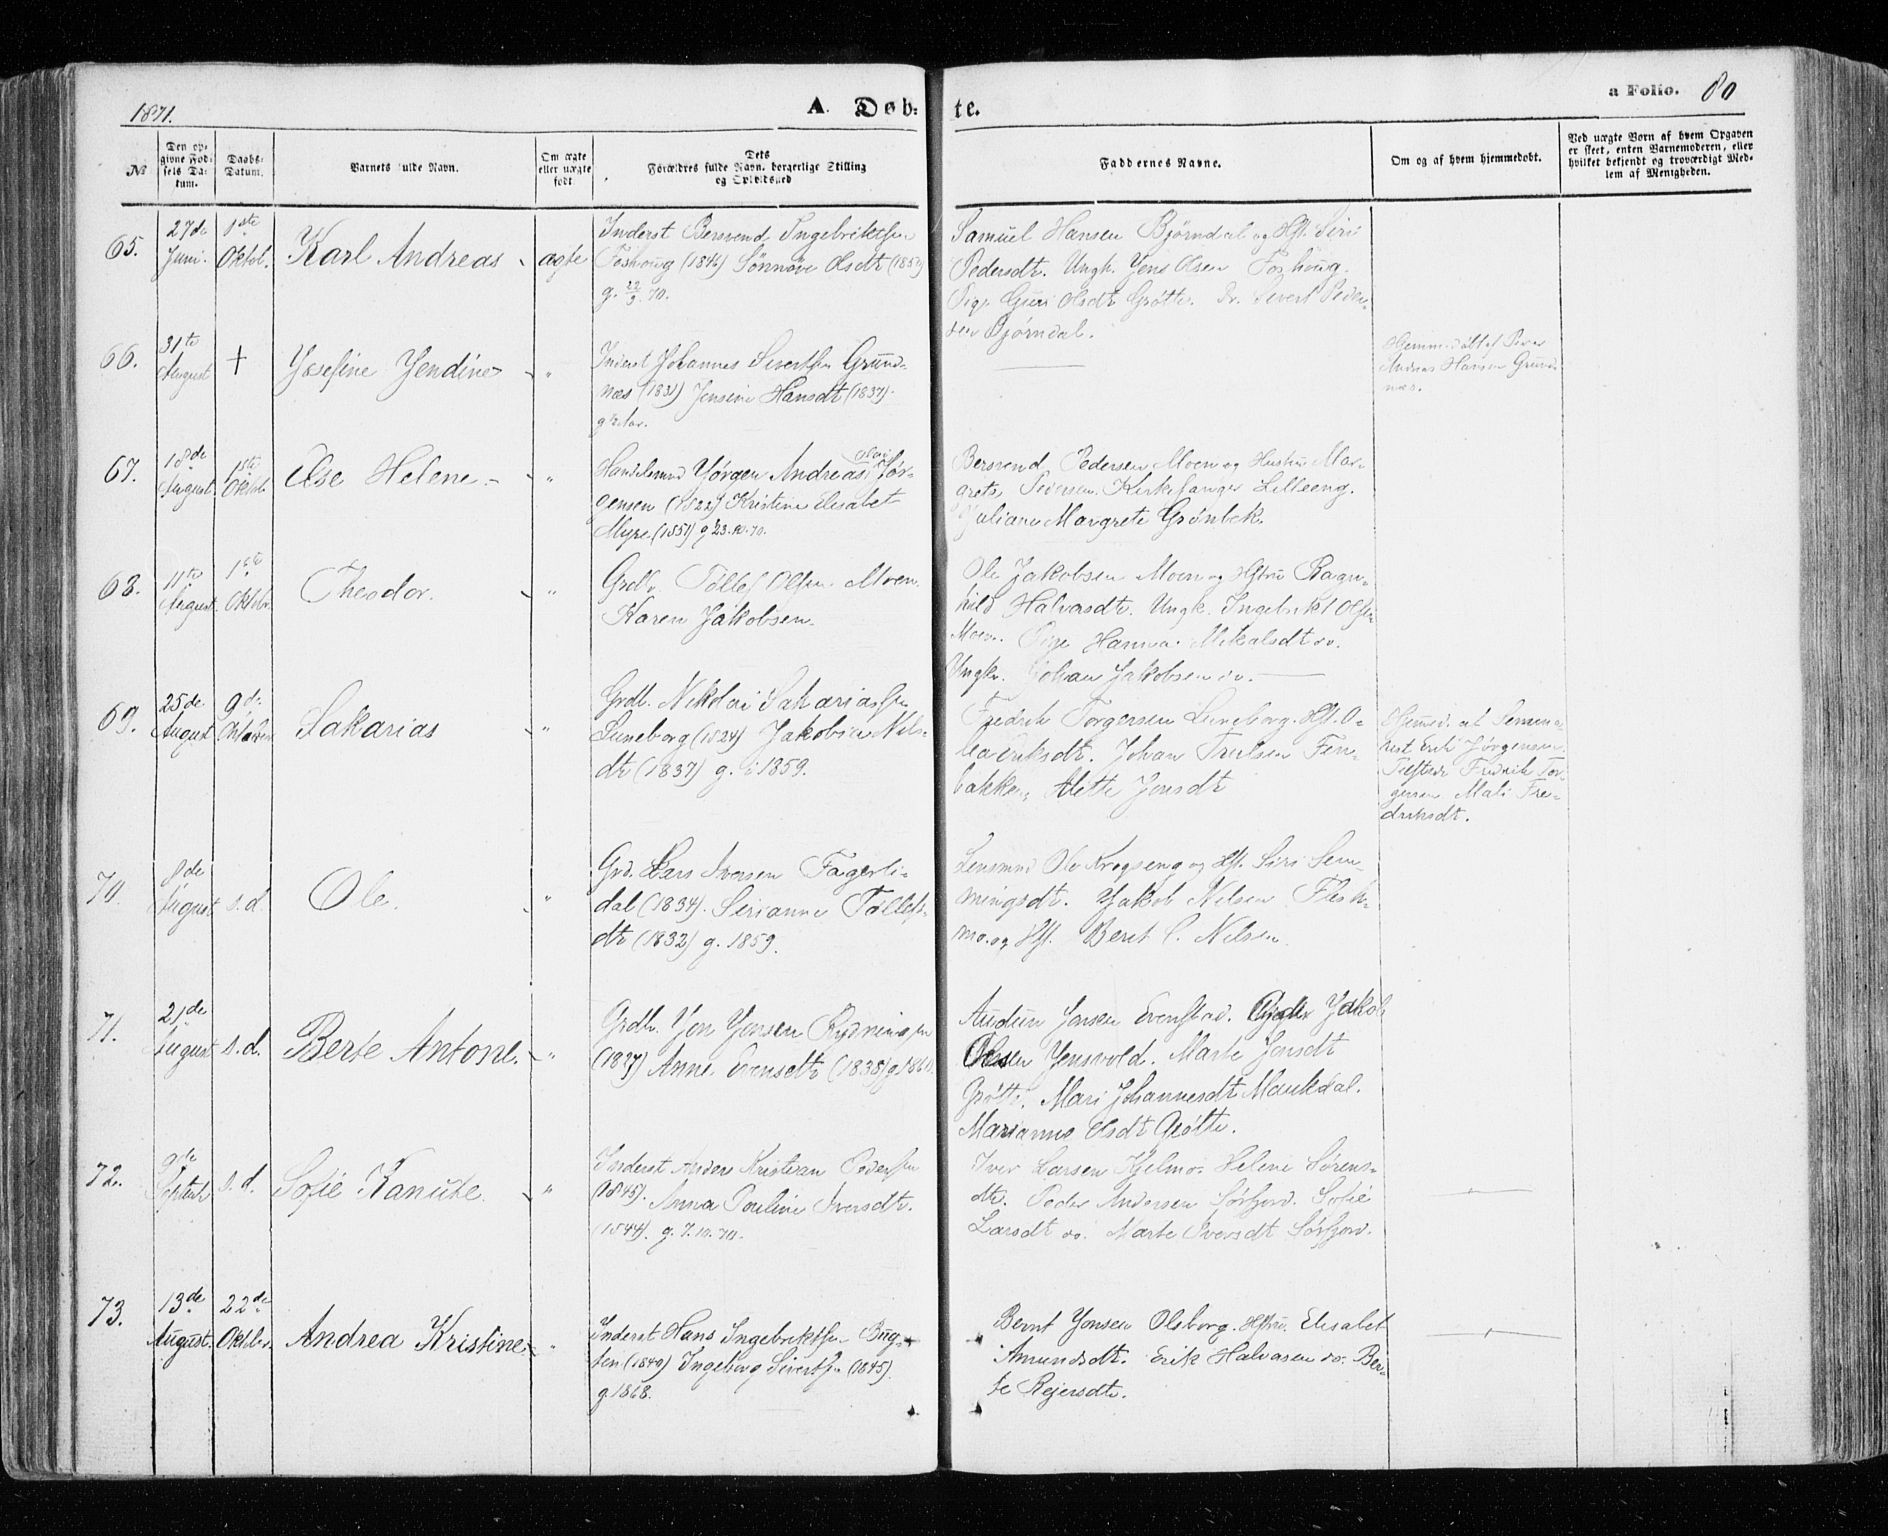 1871.
A. Døb-
te.
a Folio. 80
No
Den op-
givne Fød-
sels Da-
tum.
Daabs-
Datum.
Barnets fulde Navn.
Om ægte
eller uægte
født.
Dets
Forældres fulde Navn, borgerlige Stilling
og Opholdssted
Faddernes Navne.
Om og af hvem hjemmedøbt.
Ved uægte Børn af hvem Opgaven
er skeet, enten Barnemoderen, eller
hvilket bekjendt og troværdigt Med-
lem af Menigheden.
65.
27de
Juni.
1ste
Oktob.
Karl Andreas
ægte
Inderst Bersvend Ingebriktsen
Foshoug (1846) Sønnøve Olsdtr
g. 22/9. 70.
Samuel Hansen Bjørndal og Hst. Siri
Pedersdt. Ungk. Jens Olsen Foshoug.
Pige Guri Olsdtr Grøtte. Sivert Peder-
sen Bjørndal.
66.
31te
August
+
Josefine Jendine
"
Inderst Johannes Sivertsen Grund-
næs (1831) Jensine Hansdt (1837).
Andreas Hansen Grund-
næs.
67.
18de
August
1ste
Oktob.
Else Helene
"
Handelsmand Jørgen Andreas Jør-
gensen (1822) Kristine Elisabet
Myre (1851) g 23. 10. 70.
Bersvend Pedersen Moen og Hustru Mar-
grete Pedersen. Kirkesanger Lilleeng.
Juliane Margrete Grønbek.
68.
11te
August
1ste
Oktobr.
Theodor.
"
Grdb. Tollef Olsen Moen.
Karen Jakobsen.
Ole Jakobsen Moen og Hstru Ragn-
hild Halvorsdtr. Ungk. Ingebrikt Olsen
Moen. Pige Hanna Mikalsdt do.
Ungk. Johan Jakobsen do.
69.
25de
August
9de
Oktober
Sakarias
"
Grdb. Nikolai Sakariassen
Luneborg (1824) Jakobia Nils-
dtr (1837) g. i 1859.
Fredrik Torgersen Luneborg. Hst. O-
lea Eriksdt. Johan Truelsen Fin-
bakken, Alette Jonsdt
Hjemmed. af Semina-
rist Erik Jørgensen.
Fredrik Tor-
gersen Mali Fre-
driksdt.
70.
8de
August
s.d.
Ole.
"
Grd. Lars Iversen Fagerli-
dal (1834). Serianna Tollefs-
dtr (1832) g. 1859.
Lensmand Ole Krogseng og Hst. Siri Sem-
mingsdt. Jakob Nilsen Flesk-
mo. og Hst. Beret C. Nilsen.
71.
21de
August
s.d.
Berte Antone.
"
Grdb. Jon Jonsen Rydningen
(1827) Anne Evensdtr (1838) g.
Audun Jonsen Evenstad. Jakob
Olsen Jensvold. Marte Jonsdt
Grøtte. Mari Johannesdt Maukdal.
Marianne Olsdt Grøtte.
72.
9de
Septbr
s.d.
Sofie Kanutte
"
Inderst Anders Kristian Pedersen
(1845). Anna Pouline Iversdtr.
(1844). g. 7. 10. 70.
Iver Larsen Kjelmo. Helene Sørens-
dtr. Peder Andersen Sørfjord. Sofie
Larsdt do. Marte Iversdt Sørfjord.
73.
13de
August.
22de
Oktober.
Andrea Kristine
"
Inderst Hans Ingebriktsen Bug-
ten (1840) Ingeborg Sivertsen (1845).
g. 1868.
Bernt Jonsen Olsborg. Hstru. Elisabet
Amundsdt. Erik Halvasen do. Ber-
te Rejersdt.